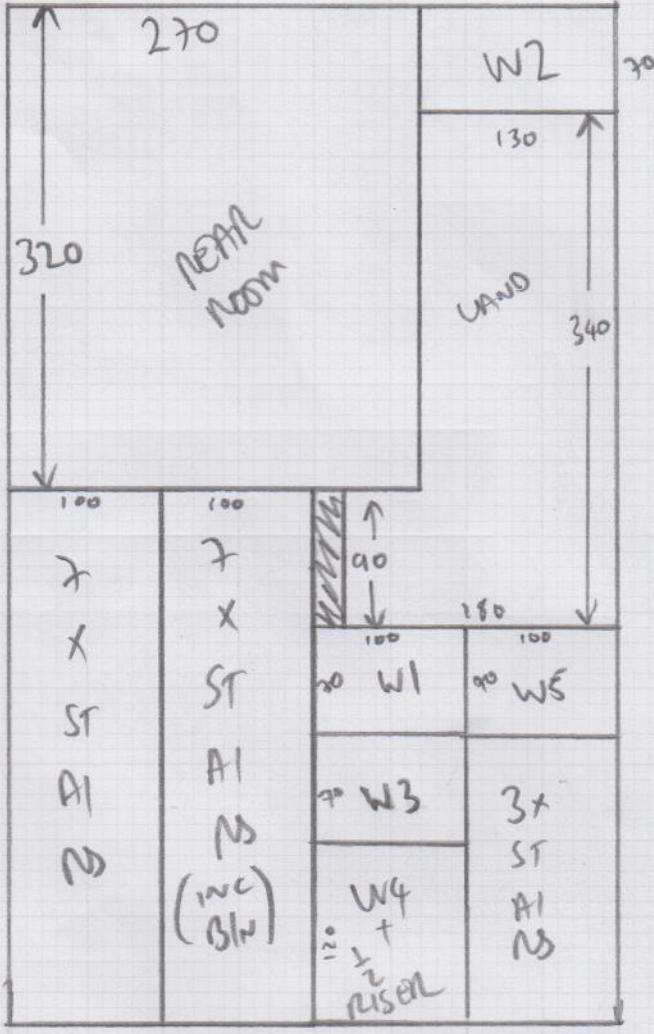 270
W2
70
130
320
REAR
ROOM
LAND
340
100
100
90
180
7
X
ST
AI
RS
7
X
ST
AI
RS
(INC
BIN)
100
100
70
W1
90
W5
70
W3
3X
ST
AI
RS
W4
+
1/2
RISER